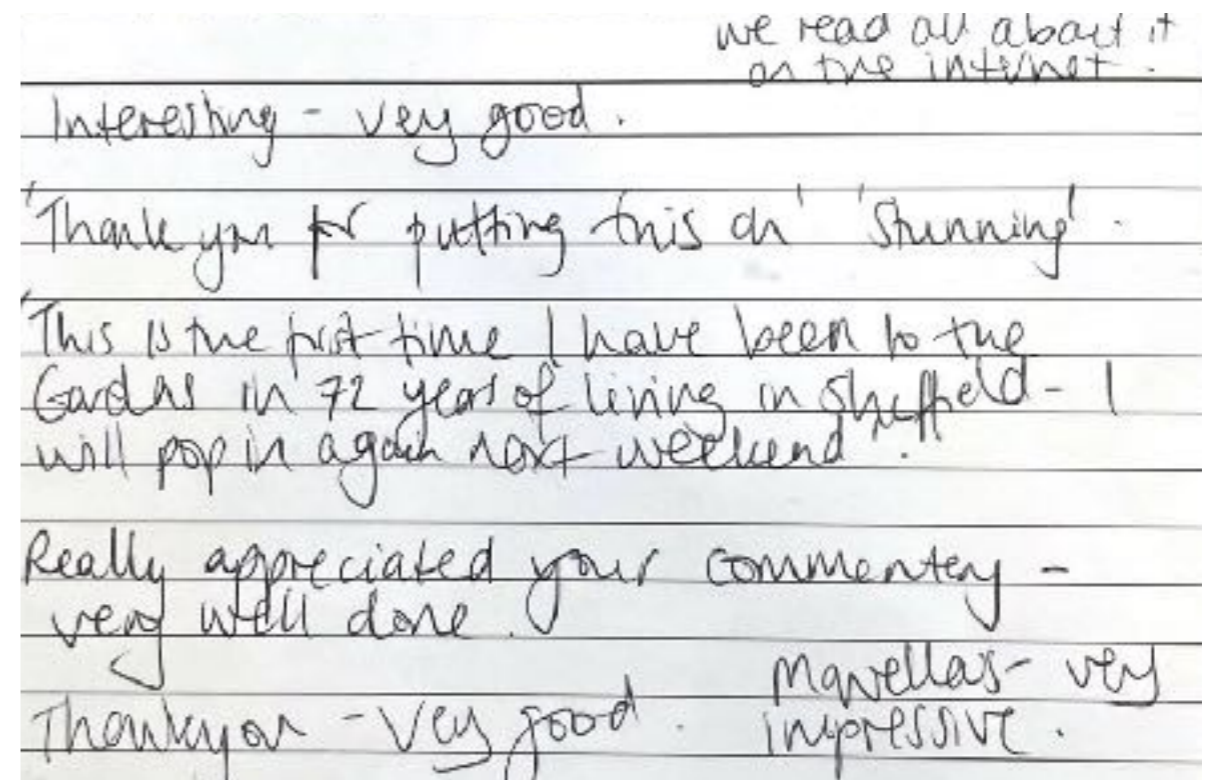 we read all about it
on the internet.
Interesting - very good.
'Thank you for putting this on' 'Stunning'.
'This is the first time I have been to the
Gardens in 72 years of living in Sheffield - I
will pop in again next weekend'.
Really appreciated your commentery -
very well done.
Marvellous - very
impressive.
Thankyou - very good.